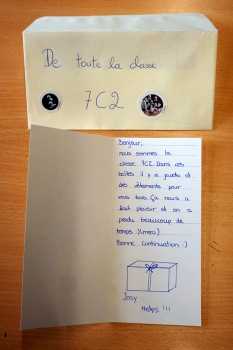 De toute la classe
7C2
Bonjour,
nous sommes la
classe 7C2. Dans ces
boîtes il y a jouets et
des vêtements pour
vous tous. Ça nous a
fait plaisir et on a
perdu beaucoup de
temps :)(merci)
Bonne continuation :)
Josy
Helps !!!